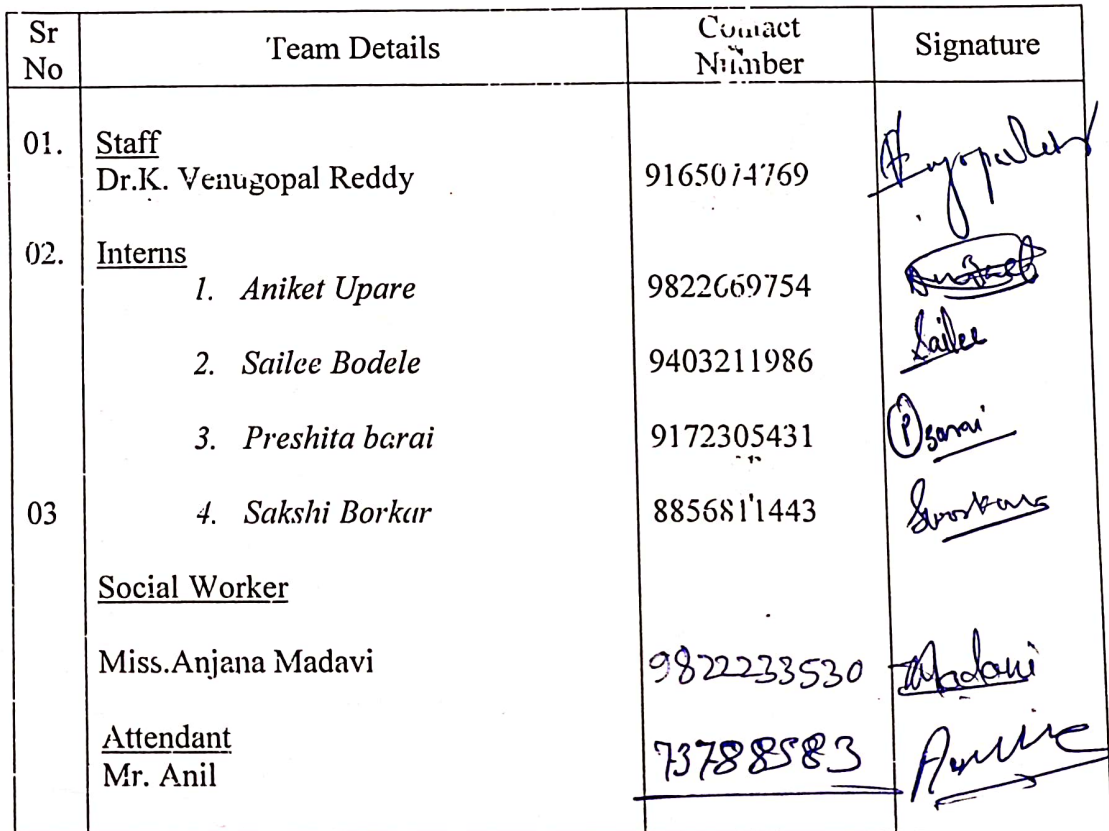 Sr No Team Details Contact Number Signature
01. Staff
Dr.K. Venugopal Reddy 9165074769
02. Interns
1. Aniket Upare 9822669754 Aniket
2. Sailee Bodele 9403211986 Sailee
3. Preshita barai 9172305431 PBarai
03 4. Sakshi Borkar 8856811443 SBorkar
Social Worker
Miss.Anjana Madavi 9822233530 Madavi
Attendant
Mr. Anil 73788583